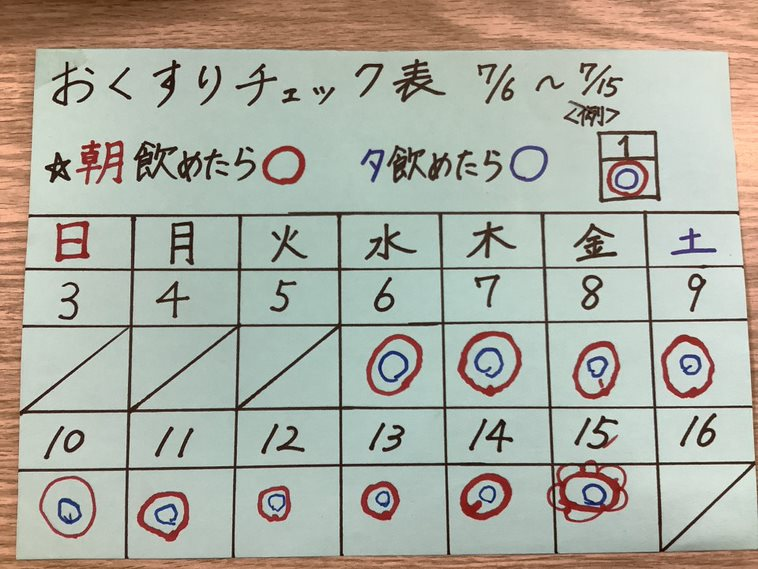 おくすりチェック表 7/6 〜 7/15
<例>
☆朝飲めたら○ 夕飲めたら○ 1
日 月 火 水 木 金 土
3 4 5 6 7 8 9
10 11 12 13 14 15 16